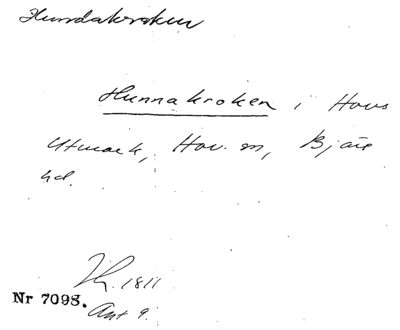 Hundakroken
Hunnakroken i Hovs
Utmark, Hov. sn, Bjäre
hd.
1811
Nr 7098. Akt 9.